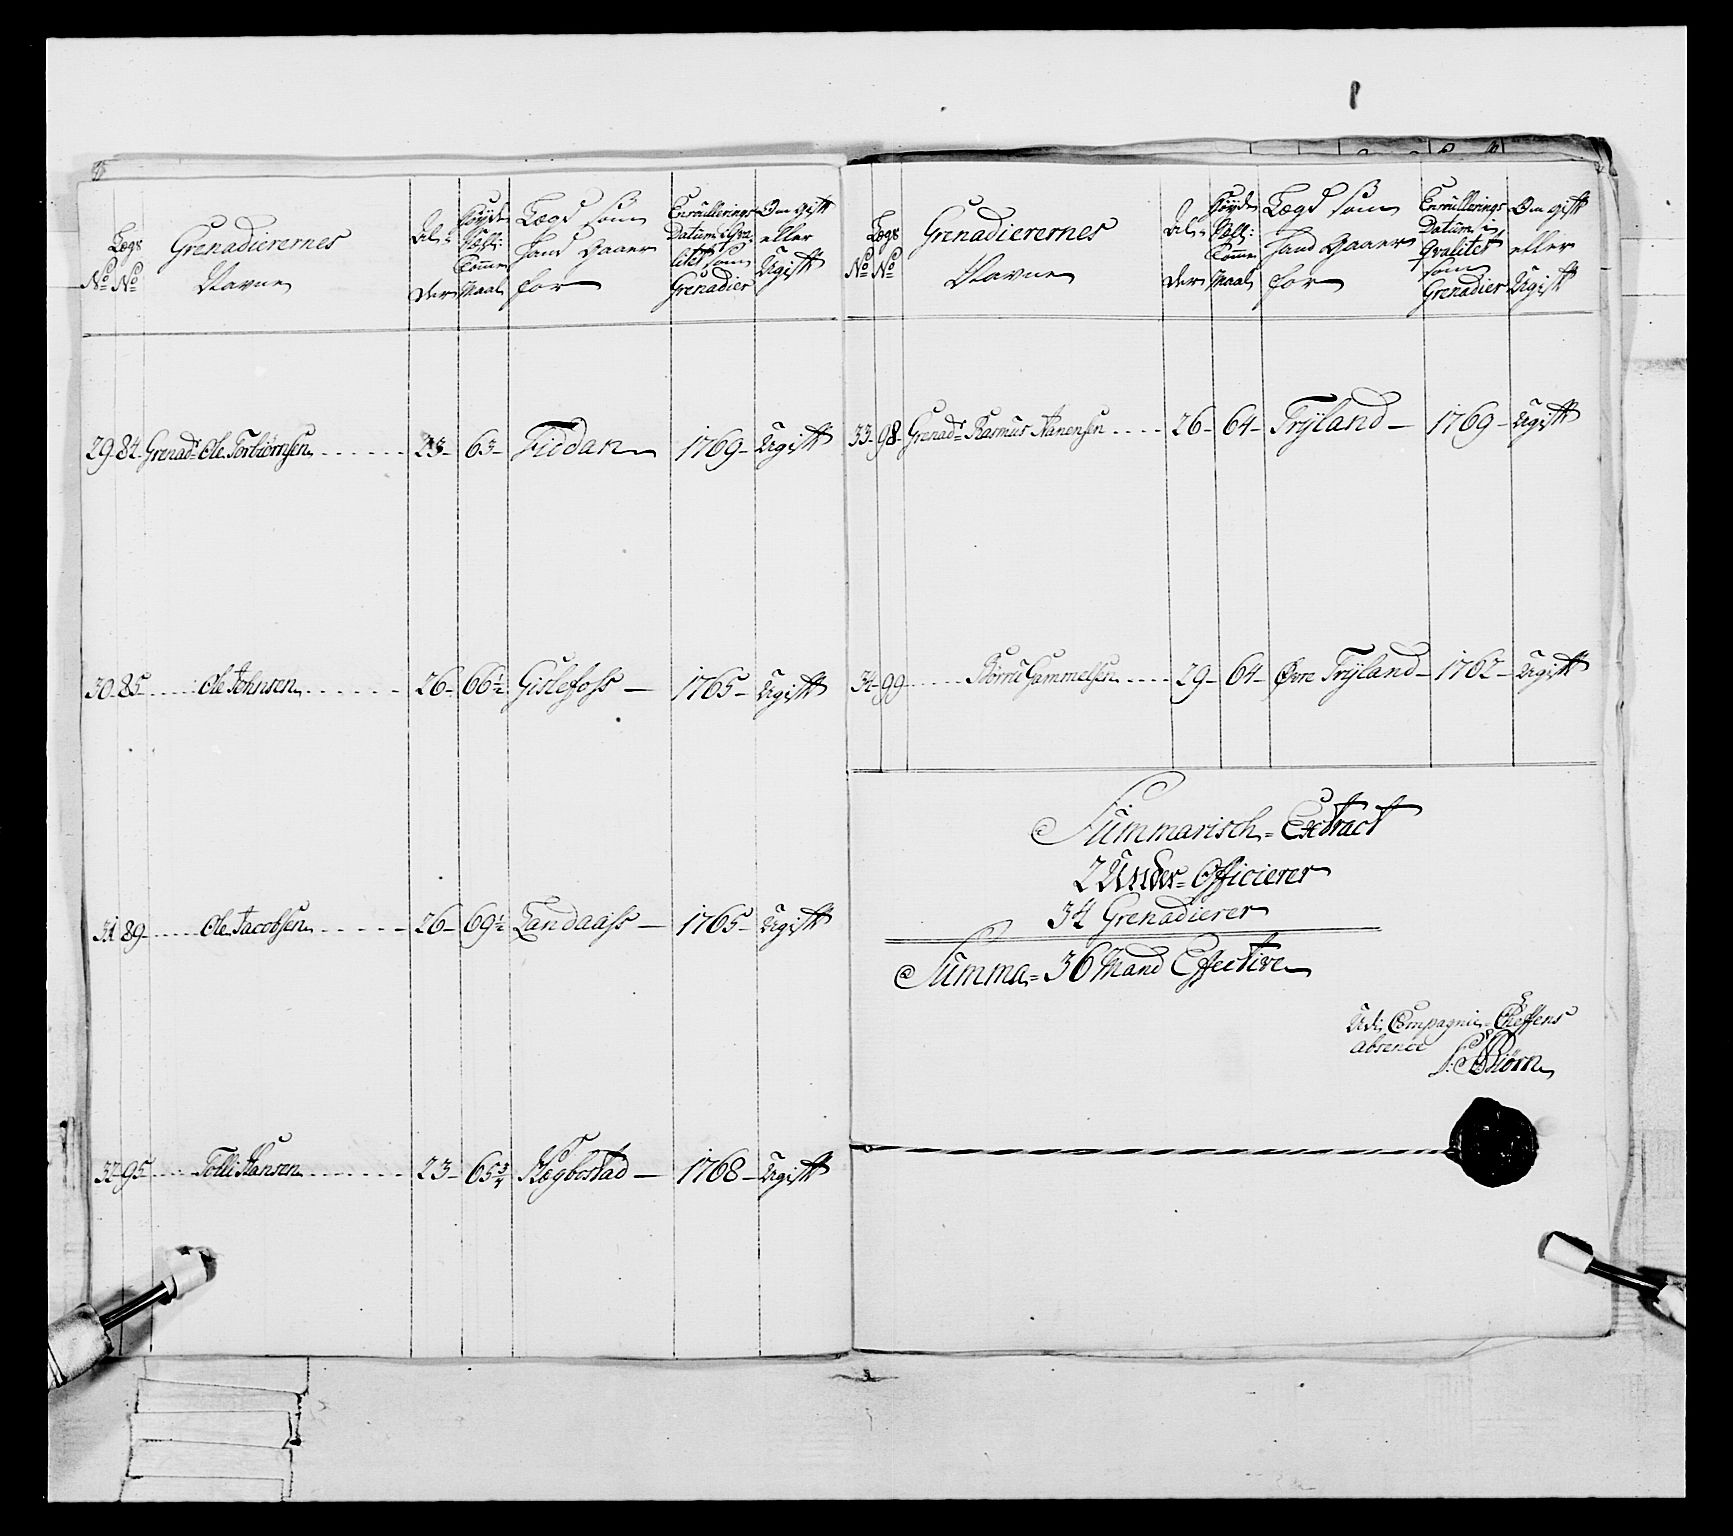 No Lægs No Grenadierernes Navne Al-der Høyde Efter Tomme Maal Lægd som Hand Gaaer for Enroullerings Datum i Qvalitet som Grenadier Om gift eller Ugift
29 84 Grenadr Ole Torbiørnsen 23 63 Fiddan 1769 Ugift
30 85 Ole Johnsen 26 66½ Gislefoss 1765 Ugift
31 89 Ole Jacobsen 26 69½ Landaass 1765 Ugift
32 95 Tolli Hansen 23 65¾ Hægbostad 1768 Ugift
No Lægs No Grenadierernes Navne Al-der Høyde Tomme Maal Lægd som Hand Gaaer for Enroullerings Datum i Qvalitet som Grenadier Om gift eller Ugift
33 98 Grenadr Rasmus Hanensen 26 64 Tryland 1769 Ugift
34 99 Børru Gammelsen 29 64 Øvre Tryland 1762 Ugift
Summarisch Extract
2 Under Officierer
34 Grenadierer
Summa 36 Mand Effective
Udi Compagnie Cheffens
absence
Biørn